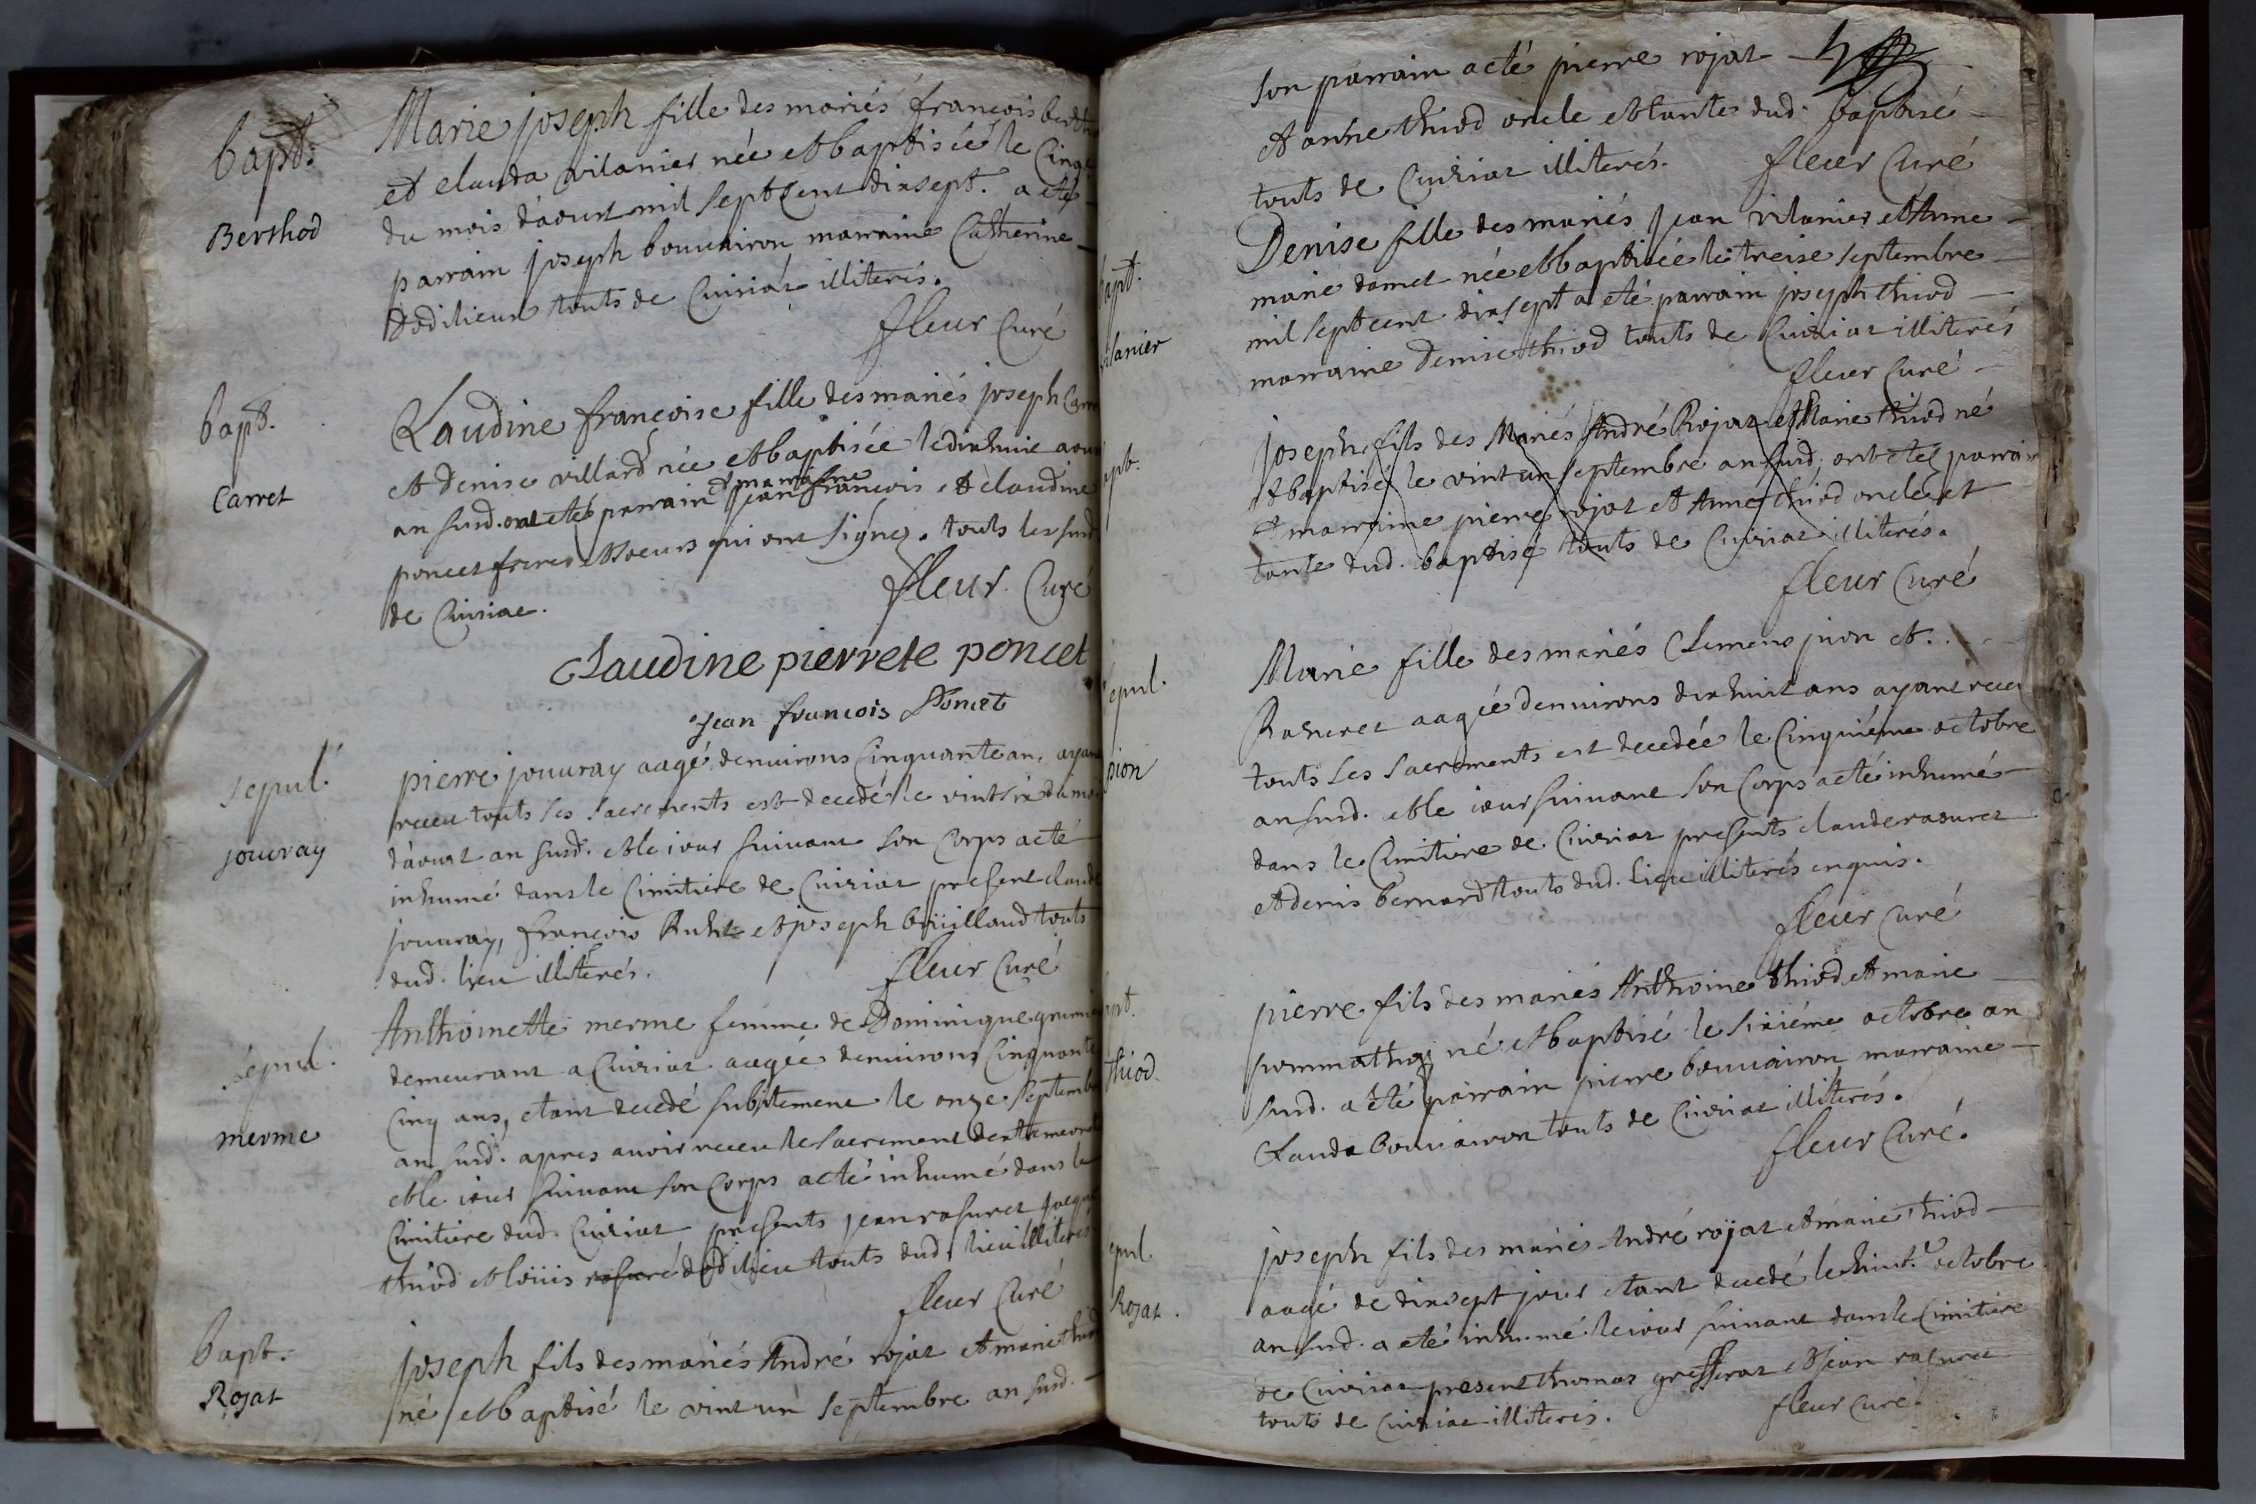 bapt.
Berthod
Marie joseph fille des mariés francois berth
et clauda vilanier née et baptisée le Cinq
du mois d'aoust mil sept Cent dixsept. a eté
parrain joseph bouvairon marraine Catherine
dodilieur touts de Cuisiat illiterés.
fleur Curé
bapt.
Carret
Claudine francoise fille des mariés joseph Carr
et Denise villard née et baptisée le dixhuit aou
an susd. ont eté parrain et marraine jean francois et claudine
poncet freres et soeurs qui ont signez. touts les susd
de Cuisiat.
fleur Curé
Claudine pierrete poncet
jean francois Poncet
sepul.
jouvray
pierre jouvray aagé denvirons Cinquante an, ayan
receu touts ses sacrements est decedé le vint six du mo
d'aoust an susd. et le iour suivant son Corps a eté
inhumé dans le Cimitiere de Cuisiat present claude
jouvray, francois et joseph touts
dud. lieu illiterés.
fleur Curé
sepul.
merme
Anthoinette merme femme de Dominique
demeurant a Cuisiat aagée denvirons Cinquante
Cinq ans, etant decedé subitement le onze septemb
an susd. apres avoir receu le sacrement
et le iour suivant son Corps a eté inhumé dans le
Cimitiere dud. Cuisiat presents jean rasuret
thiod et loüis dodilieu touts dud. lieu illiterés
fleur Curé
bapt.
Rojat
joseph fils des mariés André rojat et marie thiod
né et baptisé le vint un septembre an susd.
son parrain a eté pierre rojat
et anne thiod oncle et tante dud. baptisé
touts de Cuisiat illiterés. fleur Curé
apt.
ilanier
Denise fille des mariés jean vilanier et Anne
marie damet née et baptisée le treise septembre
mil sept cent dixsept a eté parrain joseph thiod
marraine Denise thiod touts de Cuisiat illiterés
fleur Curé
apt.
joseph fils des Mariés André Rojat et Marie thiod né
et baptisé le vint un septembre an susd. ont etez parrain
et marraine pierre rojat et Anne thiod oncle et
tante dud. baptisé touts de Cuisiat illiterés.
fleur Curé
sepul.
pion
Marie fille des mariés Clemens pion et
Rasuret aagée denvirons dixhuit ans ayant receu
touts ses sacrements est decedée le Cinquiéme octobre
an susd. et le iour suivant son Corps a eté inhumé
dans le Cimitiere de Cuisiat presents claude rasuret
et denis bernard touts dud. lieu illiterés enquis.
fleur Curé
apt.
thiod
pierre fils des mariés Anthoine thiod et marie
né et baptisé le sixiéme octobre an
susd. a eté parrain pierre bouvairon marraine
Clauda bouvairon touts de Cuisiat illiterés.
fleur Curé.
epul.
Rojat.
joseph fils des mariés André rojat et marie thiod
aagé de dixsept jour etant decedé le huit.e octobre
an susd. a eté inhumé le iour suivant dans le Cimitiere
de Cuisiat present thomas et jean rasuret
touts de Cuisiat illiterés. fleur Curé